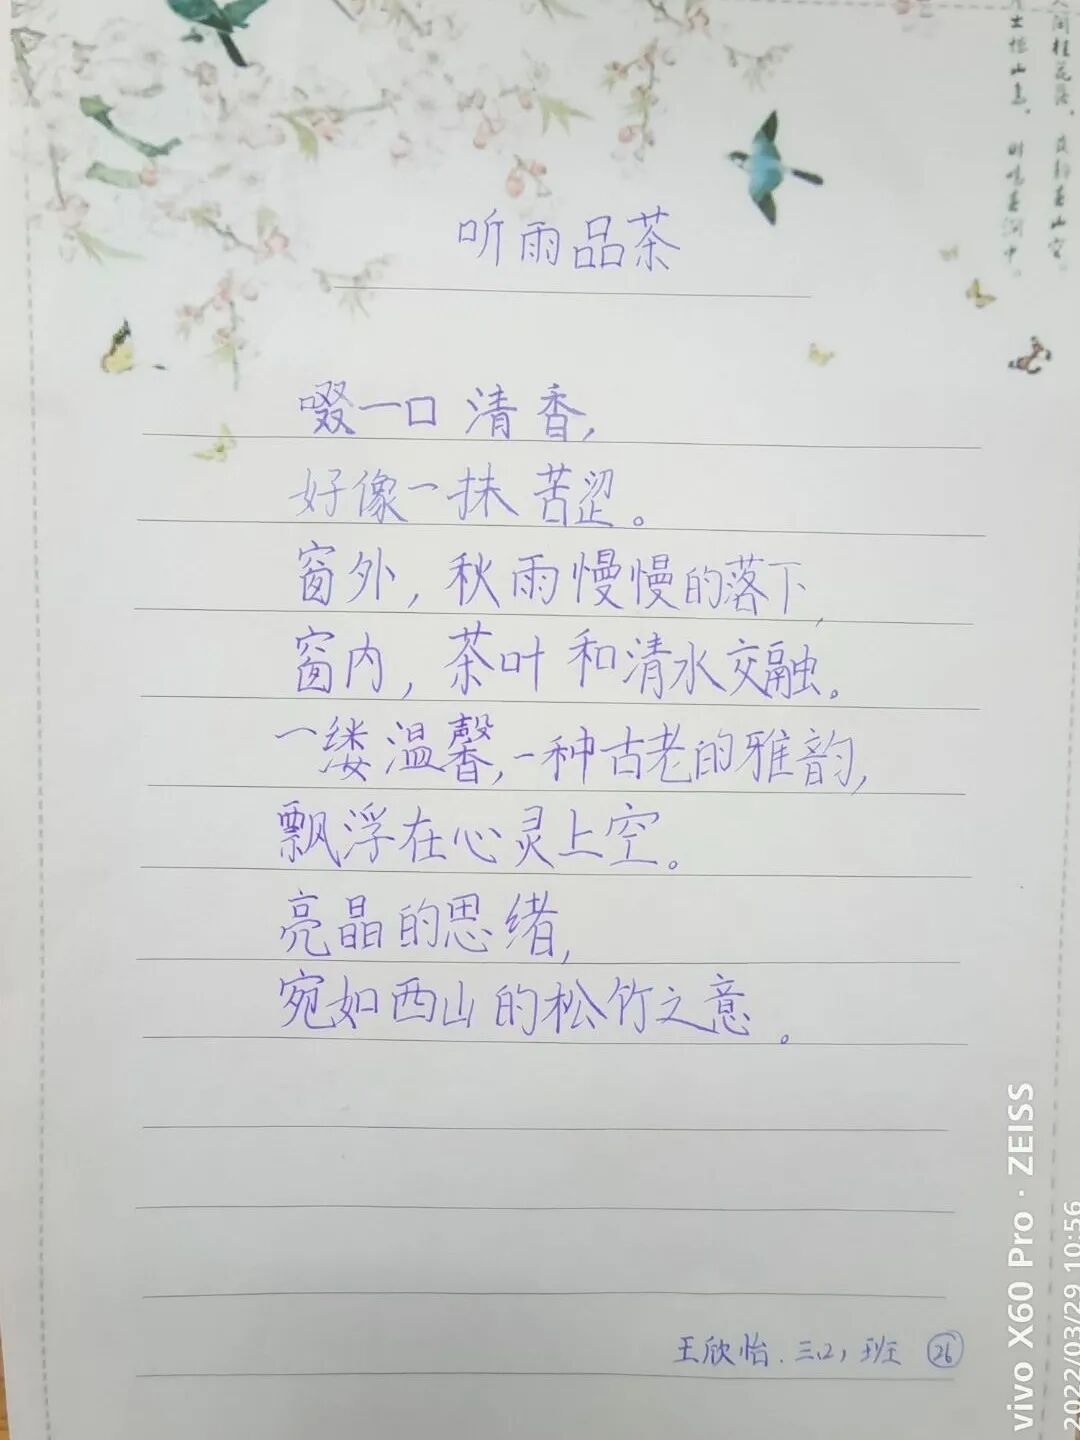 人闲桂花落，夜静春山空。
月出惊山鸟，时鸣春涧中。
听雨品茶
啜一口清香，
好像一抹苦涩。
窗外，秋雨慢慢的落下，
窗内，茶叶和清水交融。
一缕温馨，一种古老的雅韵，
飘浮在心灵上空。
亮晶的思绪，
宛如西山的松竹之意。
王欣怡.三(2)班 26
vivo X60 Pro · ZEISS
2022/03/29 10:56